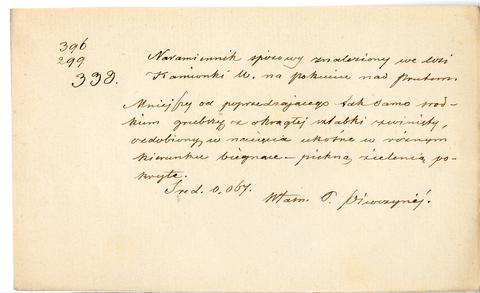 396
299
338.
Naramiennik spiżowy znaleziony we wsi
Kamionki W. na pokuciu nad Prutem.
Mniejszy od poprzedzającego tak samo środ-
kiem grubszy, z okrągłej sztabki zwinięty,
ozdobiony w nacięcia ukośne w różnym
kierunku biegnące – piękną zielenią po-
kryte.
Śred. 0,067.
Własn. P.